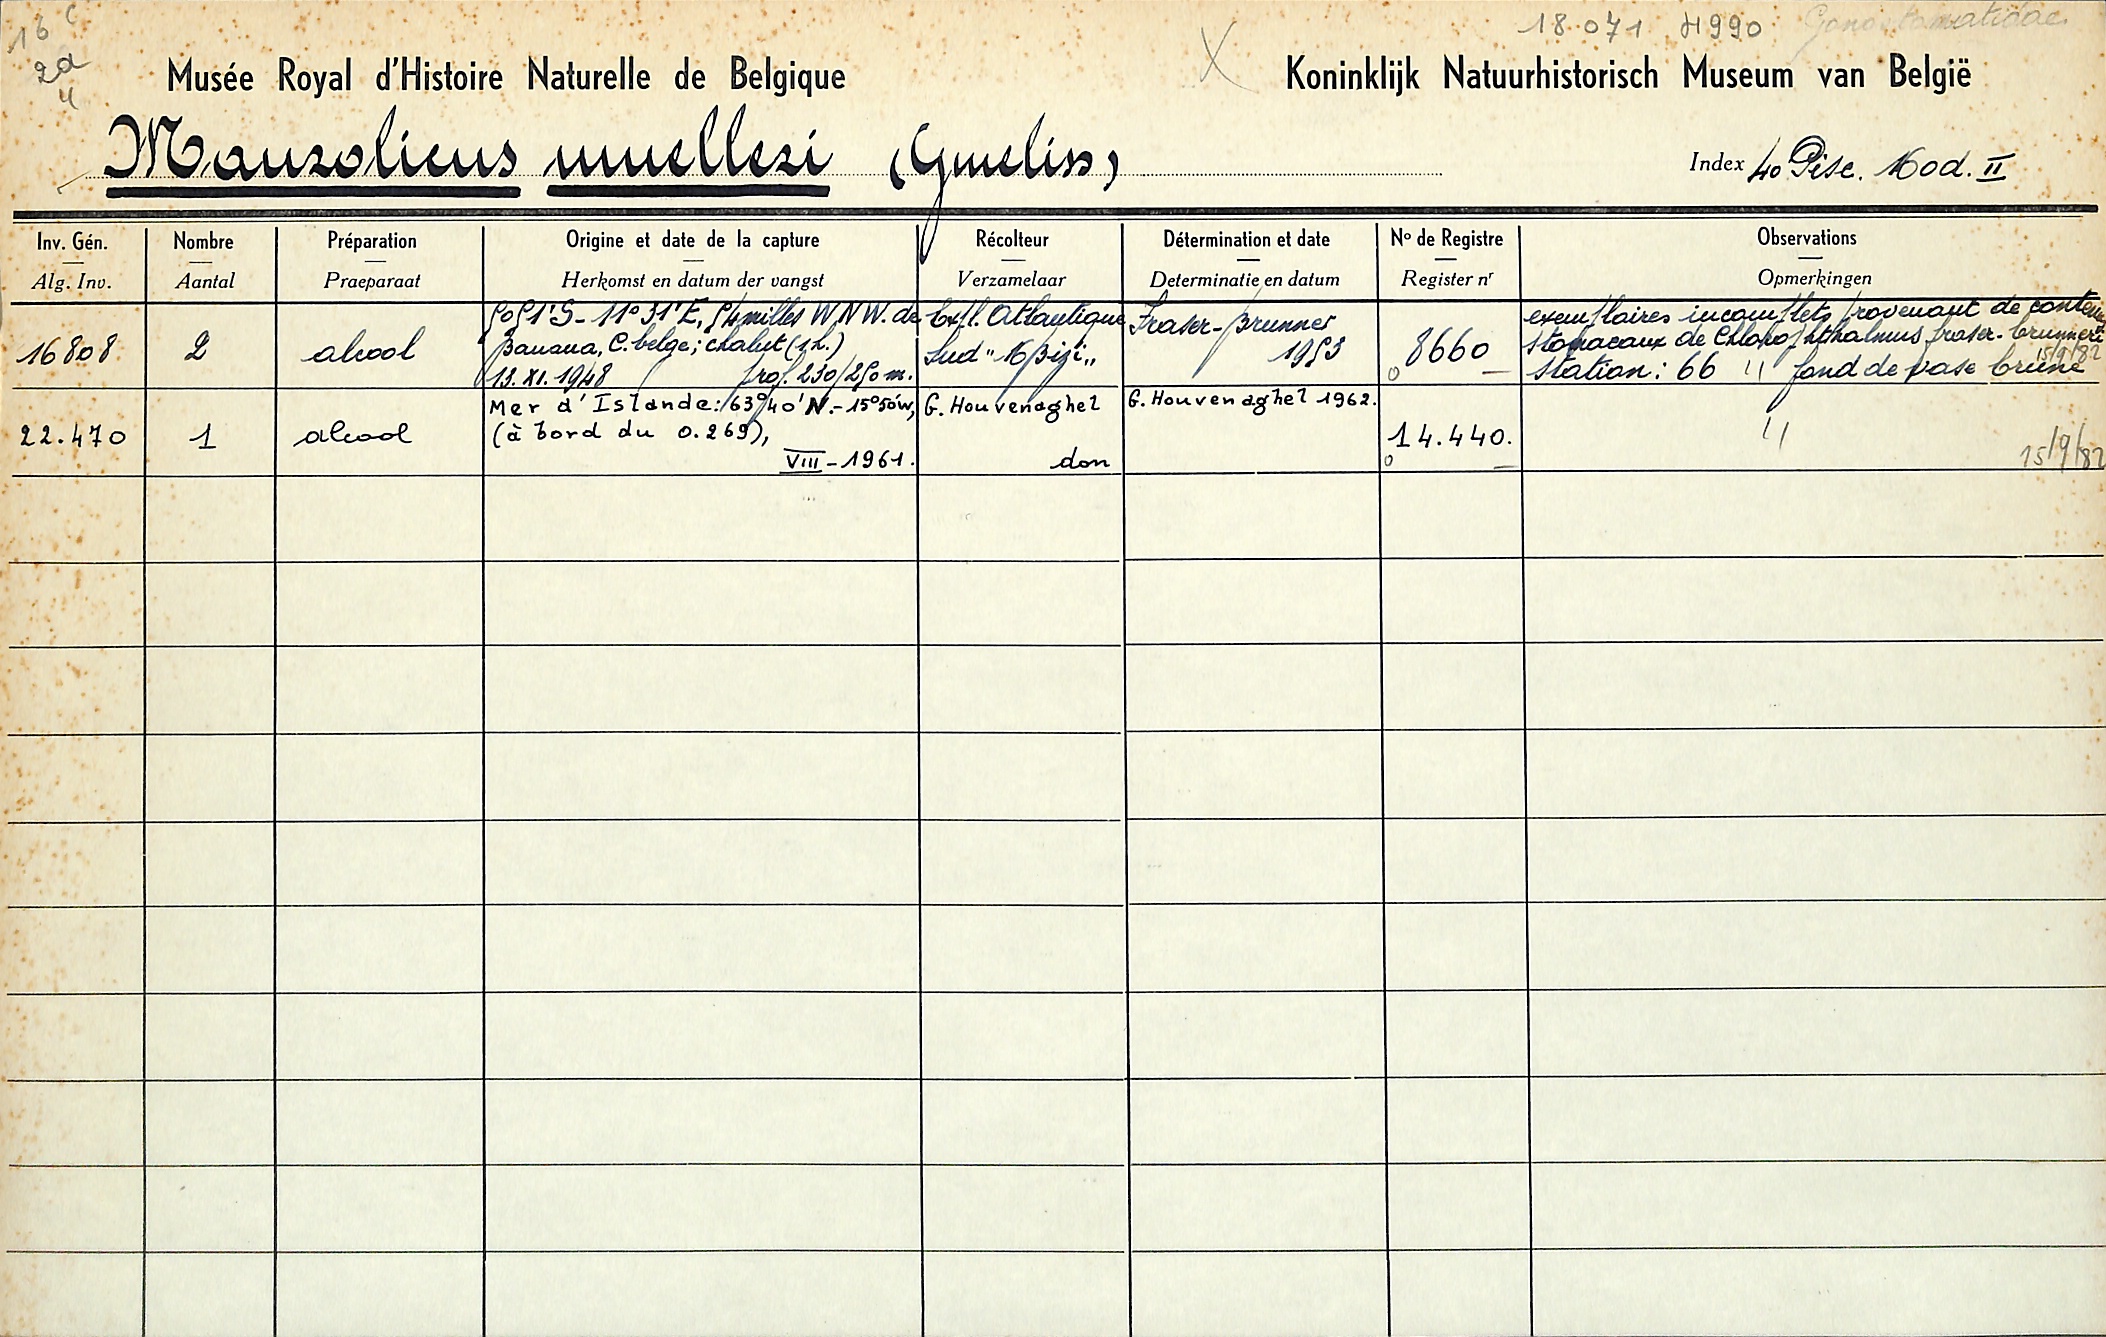 16 c
2d
4
18.071 H990 Gonostomatidae
Musée Royal d'Histoire Naturelle de Belgique
X
Koninklijk Natuurhistorisch Museum van België
Maurolicus muelleri (Gmelin)
Index 40 Pisc. Mod. II
Inv. Gén. Nombre Préparation Origine et date de la capture Récolteur Détermination et date No de Registre Observations
Alg. Inv. Aantal Praeparaat Herkomst en datum der vangst Verzamelaar Determinatie en datum Register nr Opmerkingen
16808 2 alcool
5°51'S - 11°31'E, 54 milles WNW. de
Banana, C. belge; chalut (1h.)
13.XI.1948 prof. 230/250 m.
Exfl. Atlantique
Sud "M'Bizi"
Fraser-Brunner
1953
8660
exemplaires incomplets provenant de contenus
stomacaux de Chlorophthalmus fraser-brunneri
Station: 66 " fond de vase brune
15/9/82
22.470 1 alcool
Mer d'Islande: 63°40'N.-15°50'W,
(à bord du O.269),
VIII-1961.
G. Houvenaghel
don
G. Houvenaghel 1962.
14.440.
"
15/9/82